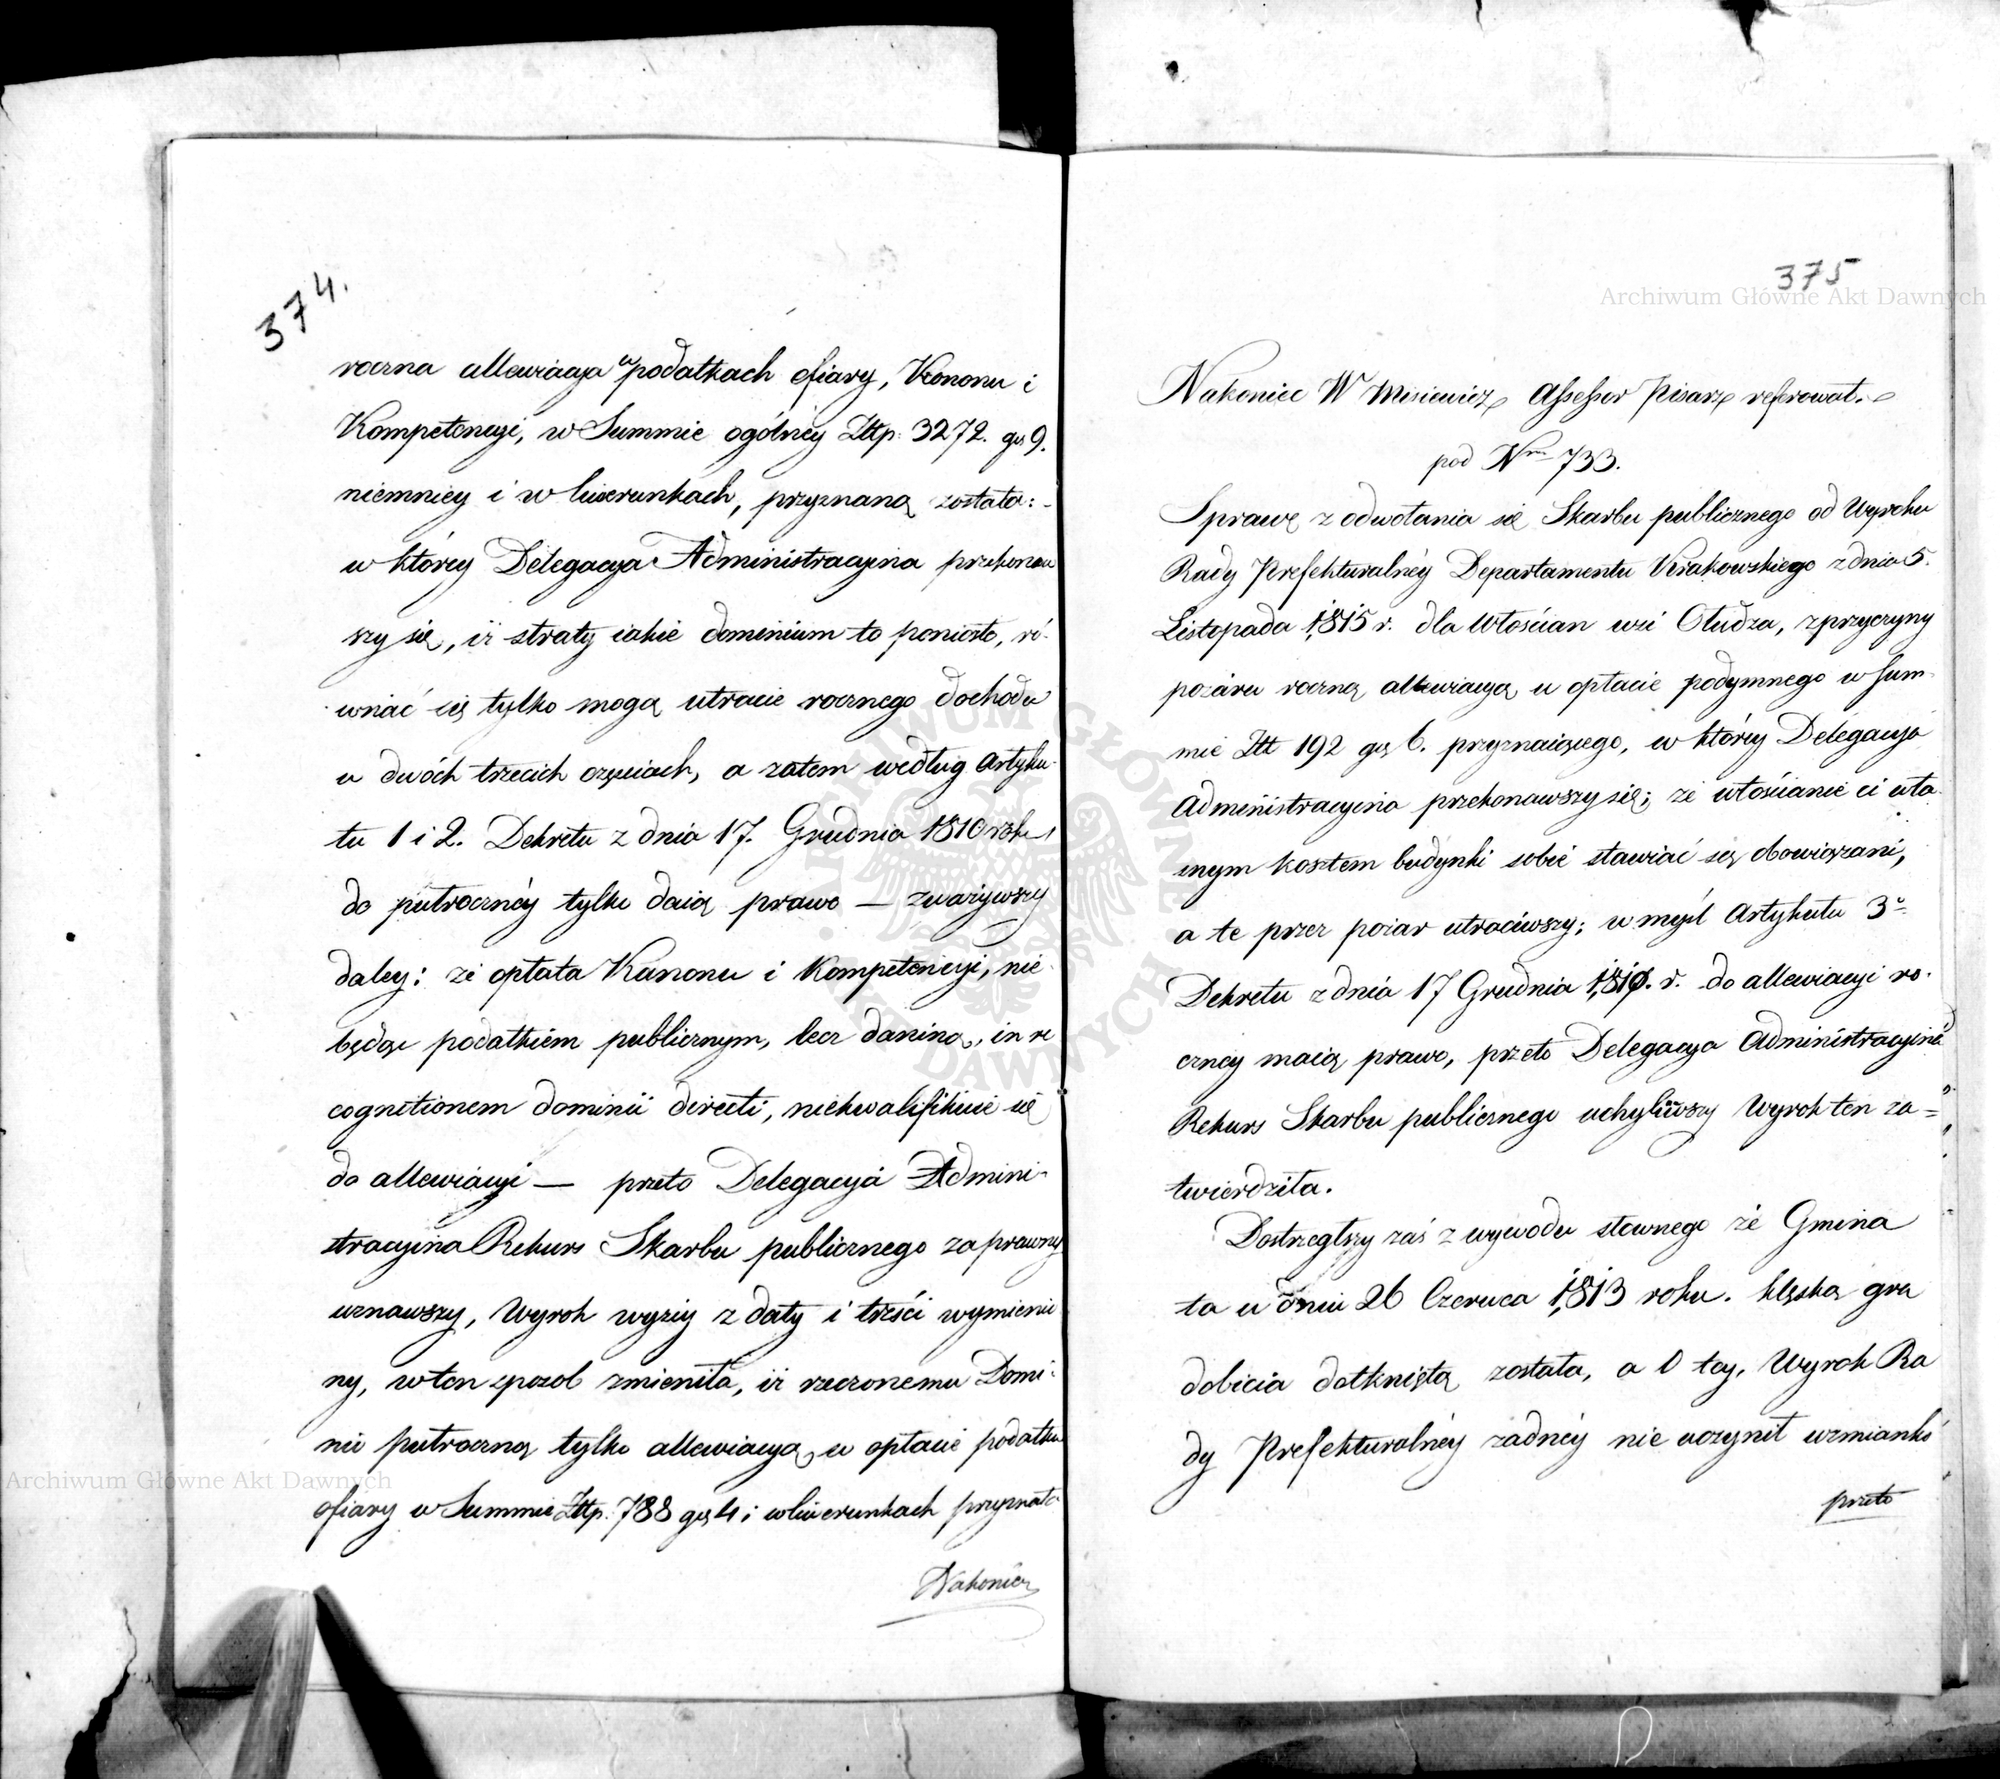 374.
roczna allewiacya w podatkach ofiary, Kanonu i
Kompetencyi, w Summie ogólnéy Złtp: 3272. gr 9.
niemniey i w liwerunkach, przyznaną została:-
w któréy Delegacya Administracyina przekonaw
szy się, iż straty iakie dominium to poniosło, ró-
wnać się tylko mogą utracie rocznego dochodu
w dwóch trzecich częściach, a zatem według Artyku-
łu 1 i 2. Dekretu z dnia 17. Grudnia 1810 roku,
do półrocznéy tylko daią prawo — zważywszy
daley: że opłata Kanonu i Kompetencyi, nie
będąc podatkiem publicznym, lecz daniną, in re
cognitionem dominii directi, niekwalifikuie się
do allewiacyi — przeto Delegacyia Admini-
stracyina Rekurs Skarbu publicznego za prawny
uznawszy, Wyrok wyżéy z daty i treści wymienio
ny, w ten sposób zmieniła, iż rzeczonemu Domi-
niu półroczną tylko allewiacyą w opłacie podatku
ofiary w Summie Złtp. 788 gr 4 i w liwerunkach przyznała
Nakoniec
375
Archiwum Główne Akt Dawnych
Nakoniec W Misiewicz Assessor Pisarz referował.
pod Nrm 733.
Sprawę z odwołania się Skarbu publicznego od Wyroku
Rady Prefekturalnéy Departamentu Krakowskiego z dnia 5.
Listopada 1815 r. dla Włościan wsi Oludza, z przyczyny
pożaru roczną allewiacyą w opłacie podymnego w Sum-
mie Złt 192 gr 6. przyznaiącego, w któréy Delegacya
Administracyina przekonawszy się; że włościanie ci wła-
snym kosztem budynki sobie stawiać są obowiązani,
a te przez pożar utraciwszy; w myśl Artykułu 3o
Dekretu z dnia 17 Grudnia 1810. r. do allewiacyi ro-
cznéy maią prawo, przeto Delegacya Administracyina
Rekurs Skarbu publicznego uchyliwszy Wyrok ten za=
twierdziła.
Dostrzegłszy zaś z wywodu słownego że Gmina
ta w dniu 26 Czerwca 1813 roku. klęską gra
dobicia dotkniętą została, a o tey, Wyrok Ra
dy Prefekturalnéy żadnéy nie uczynił wzmianki
przeto
ARCHIWUM GŁÓWNE AKT DAWNYCH
Archiwum Główne Akt Dawnych